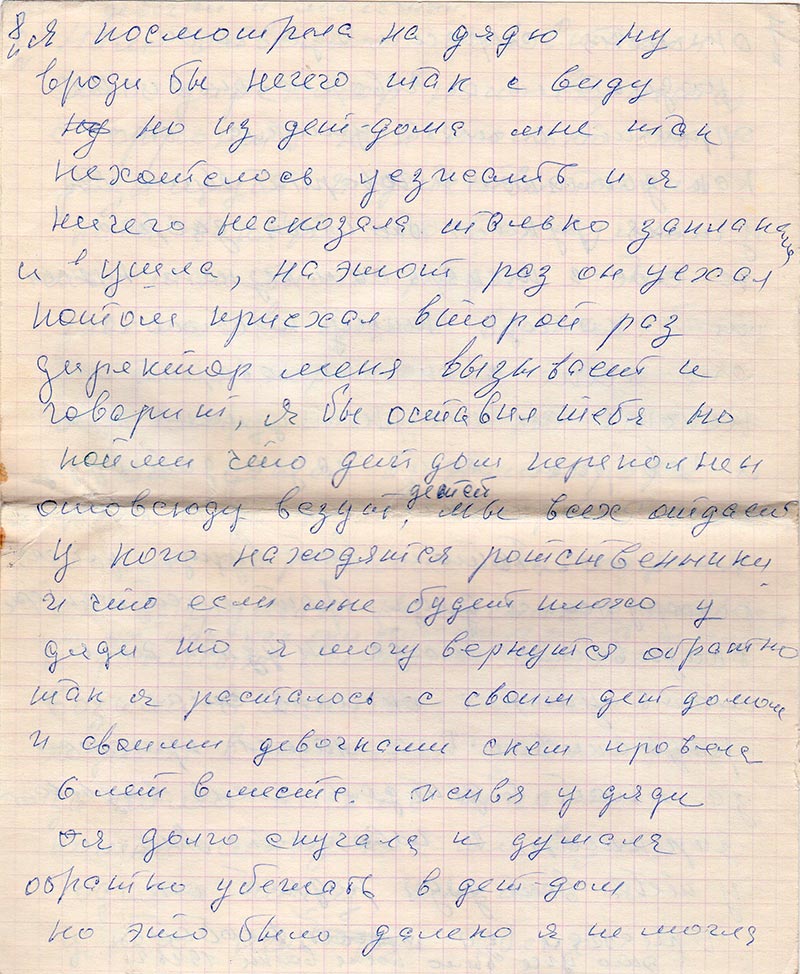 8 я посмотрела на дядю ну
вроди бы нечего так с виду
но из дет-дома мне так
нехотелось уезжать и я
ничего несказала только заплакала
и ушла, на этот раз он уехал
потом приехал второй раз
директор меня вызывает и
говорит, я бы оставил тебя но
пойми что дет дом переполнен
отовсюду везут детей, мы всех отдаем
у кого находятся ротственники
и что если мне будет плохо у
дяди то я могу вернутся обратно
так я расталось с своим дет домом
и своими девочками скем провела
6 лет в месте. живя у дяди
я долго скучала и думала
обратно убежать в дет-дом
но это было далеко я не могла